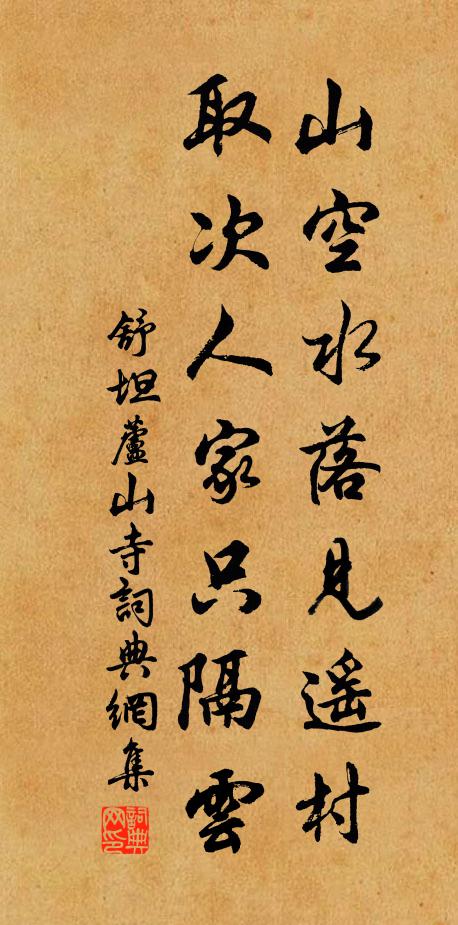 山空水落見遥村
取次人家只隔雲
舒坦蘆山寺詞典網集
詞典網印